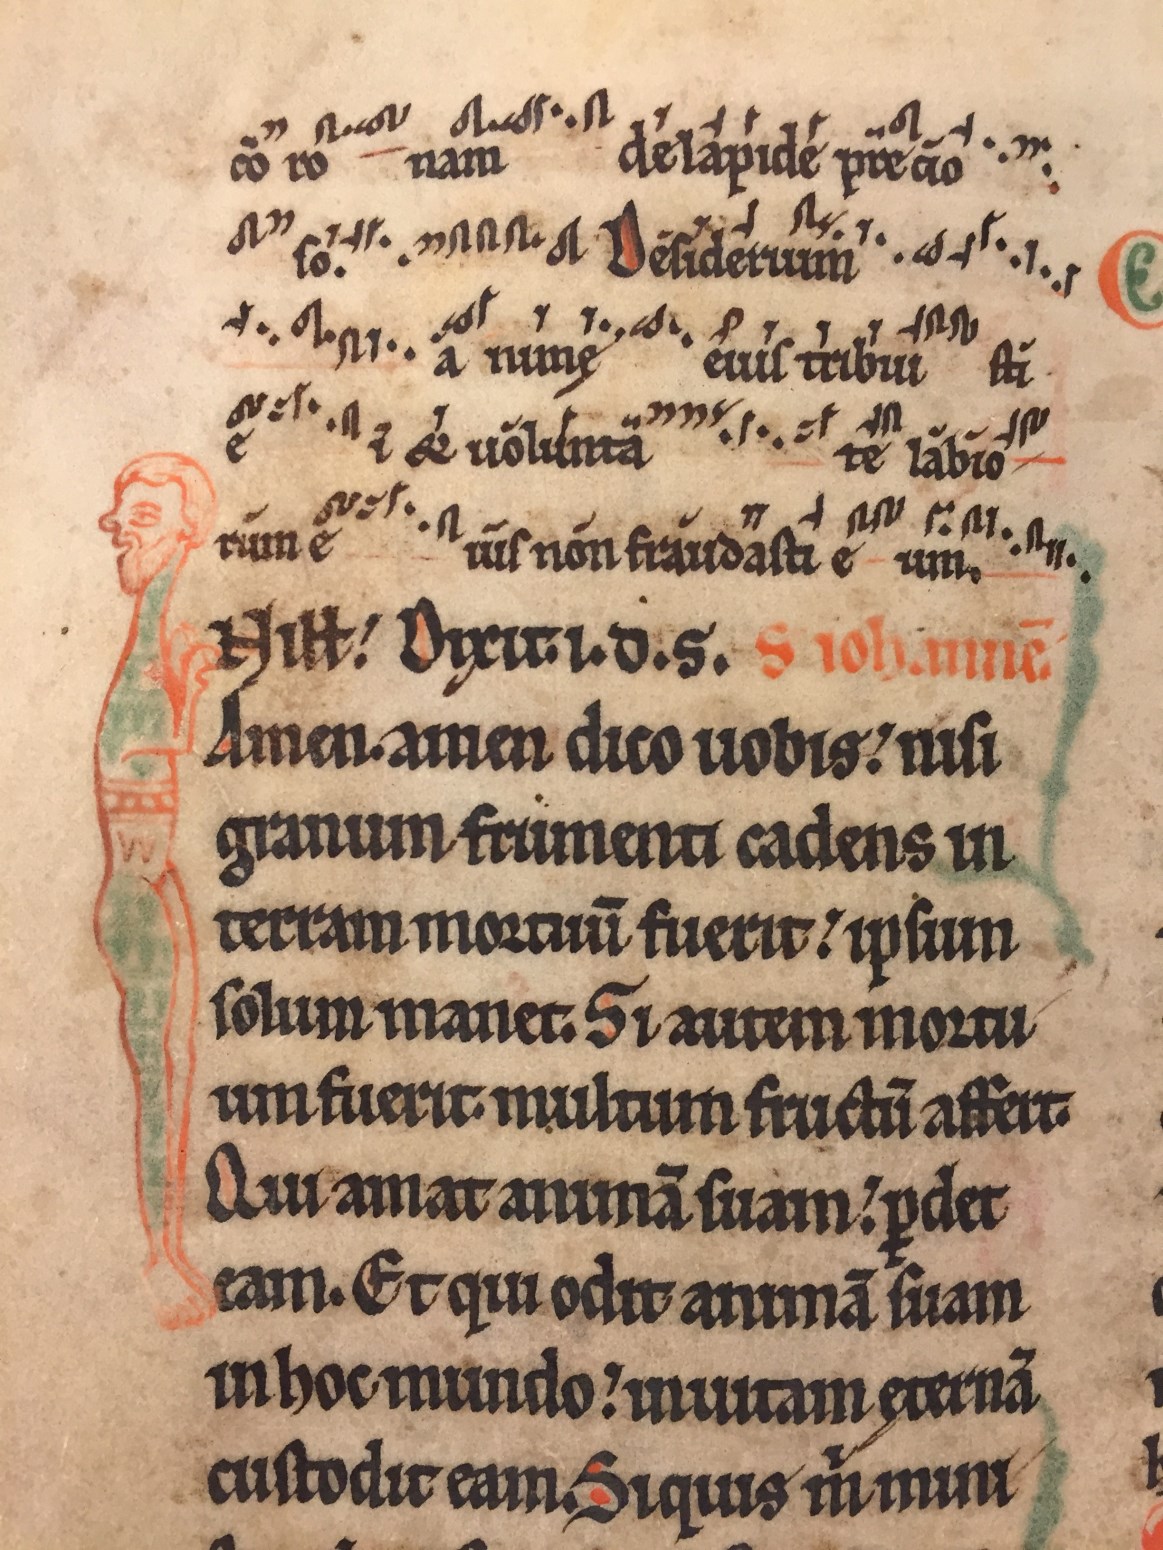 cō ro nam de lapide precio
so. Desiderium
a nimę eius tribui sti
e i & uolunta te labio
rum e ius non fraudasti e um.
Hill! Dixit. i. d. s. S iohannē
Amen. amen dico uobis! nisi
granum frumenti cadens in
terram mortuū fuerit! ipsum
solum manet. Si autem mortu
um fuerit. multum fructū affert.
Qui amat animā suam! ꝑdet
eam. Et qui odit animā suam
in hoc mundo! in uitam ęternā
custodit eam. Siquis m̄ mini